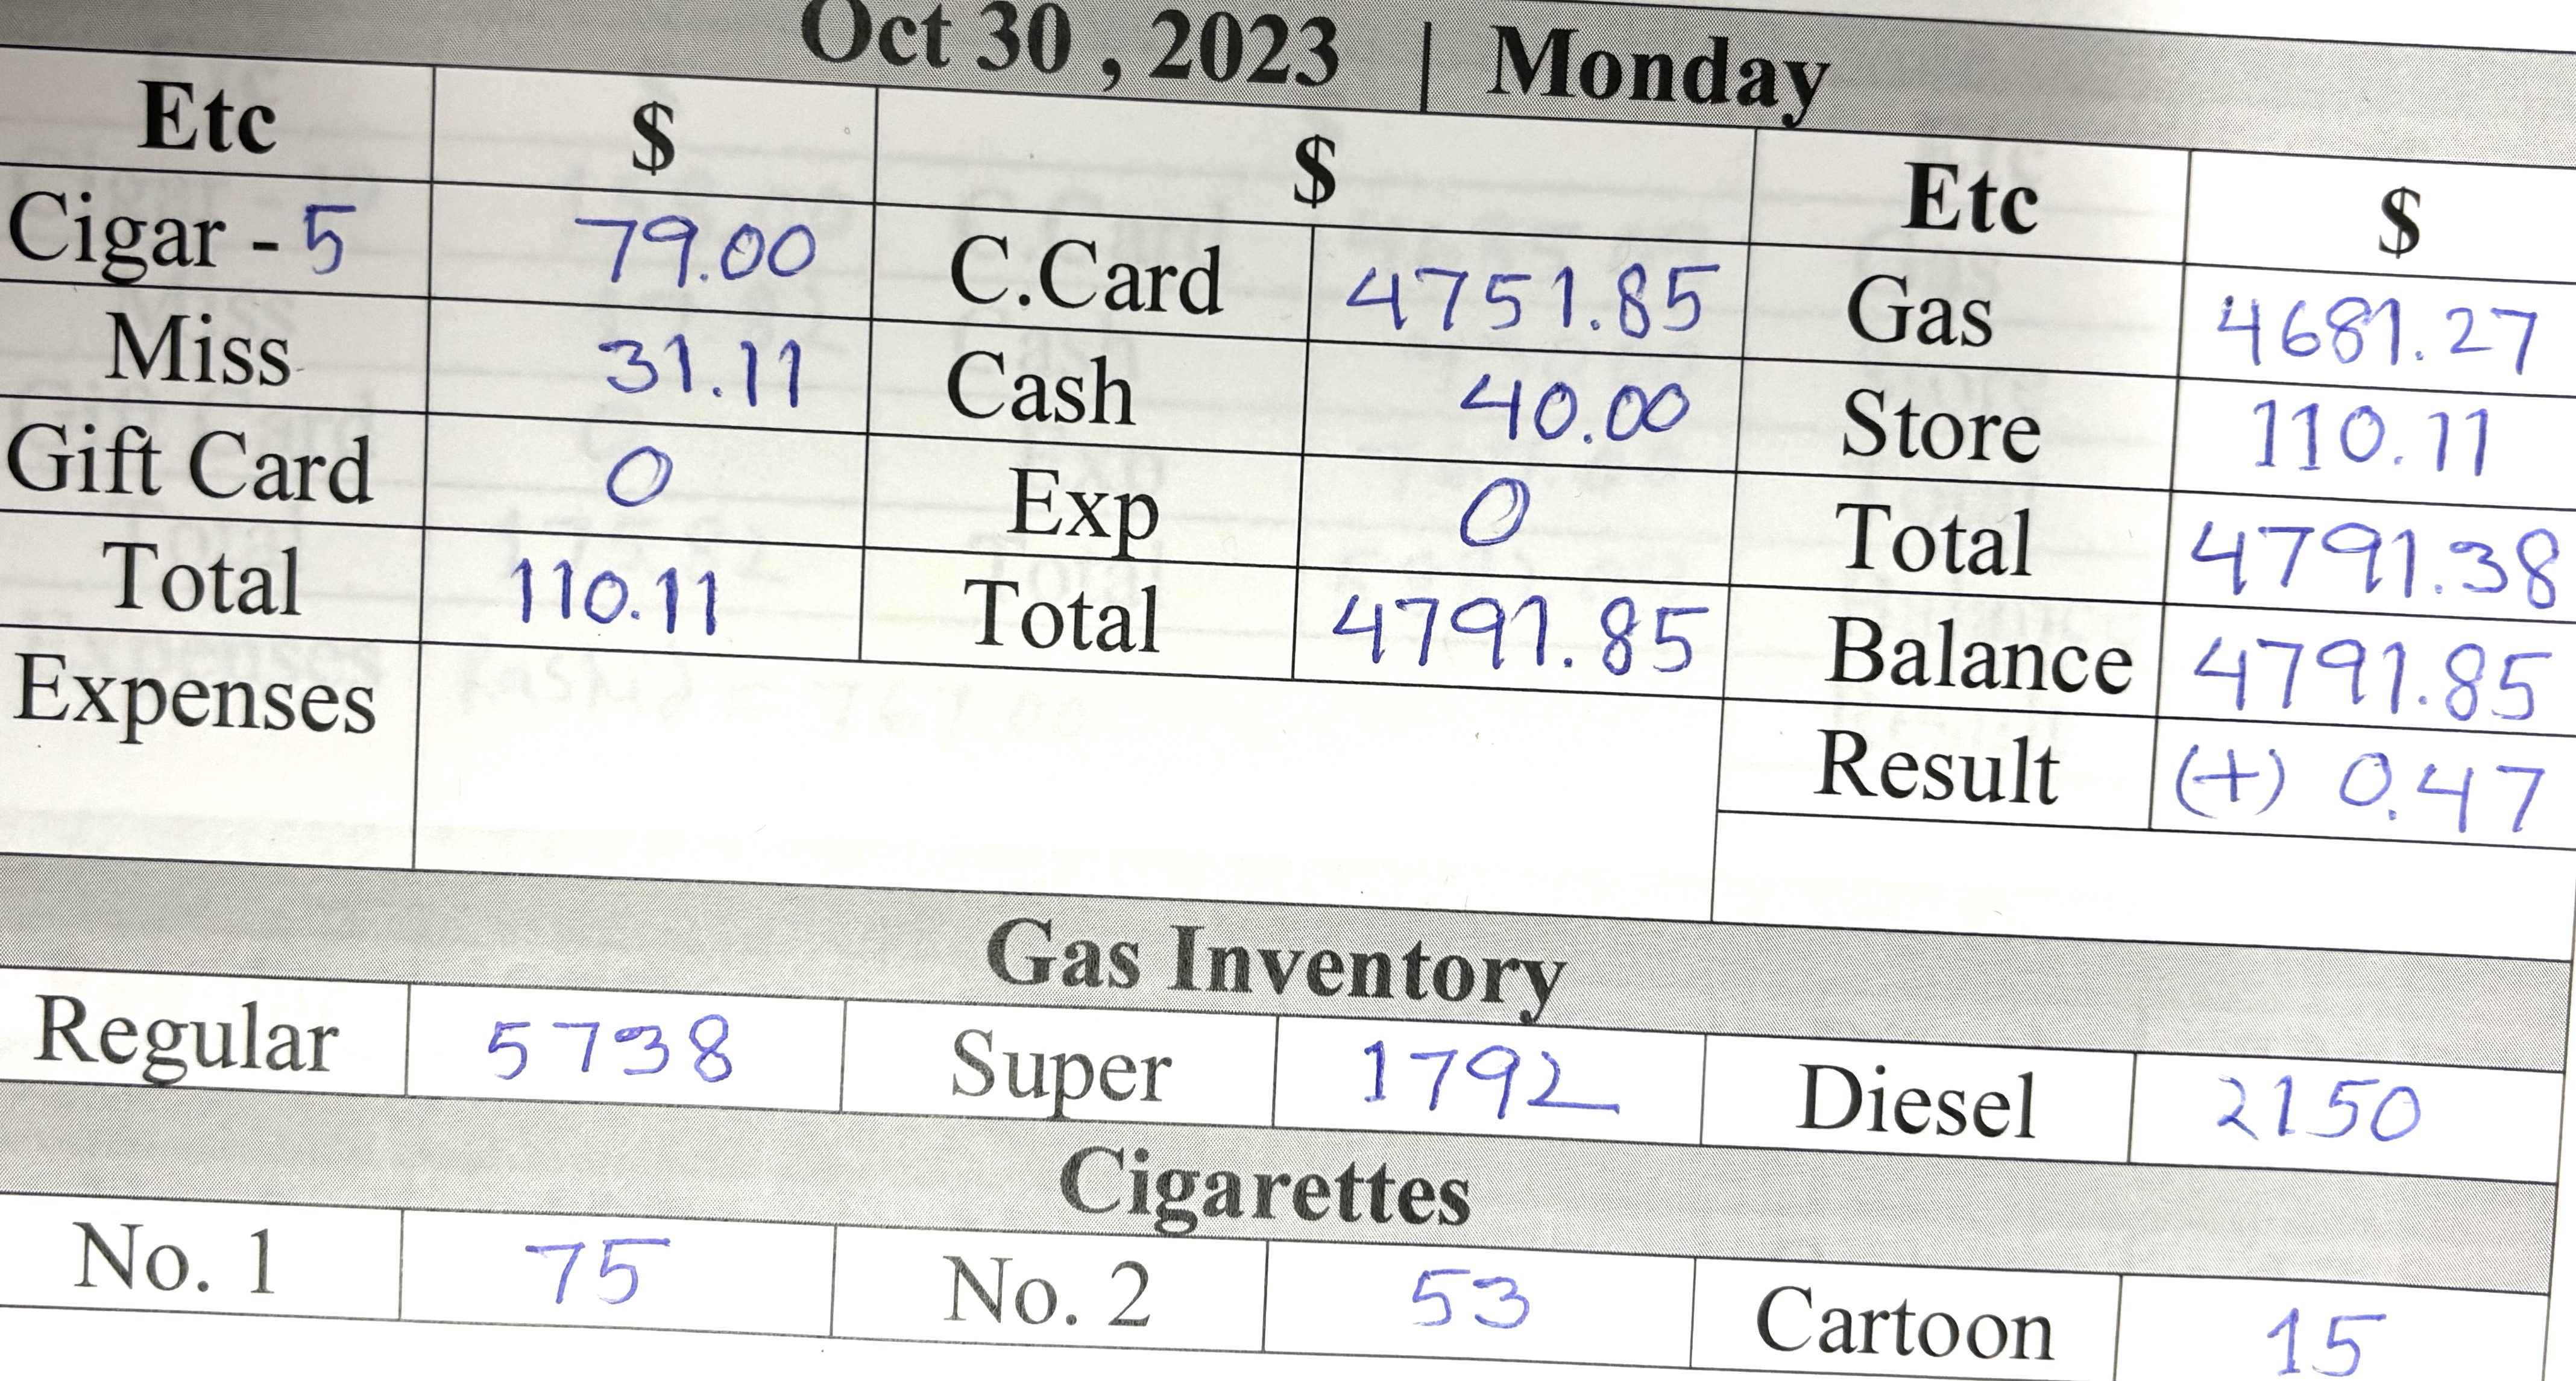 Oct 30 , 2023 | Monday
Etc $ $ Etc $
Cigar - 5 79.00 C.Card 4751.85 Gas 4681.27
Miss 31.11 Cash 40.00 Store 110.11
Gift Card 0 Exp 0 Total 4791.38
Total 110.11 Total 4791.85 Balance 4791.85
Expenses Result (+) 0.47
Gas Inventory
Regular 5738 Super 1792 Diesel 2150
Cigarettes
No. 1 75 No. 2 53 Cartoon 15